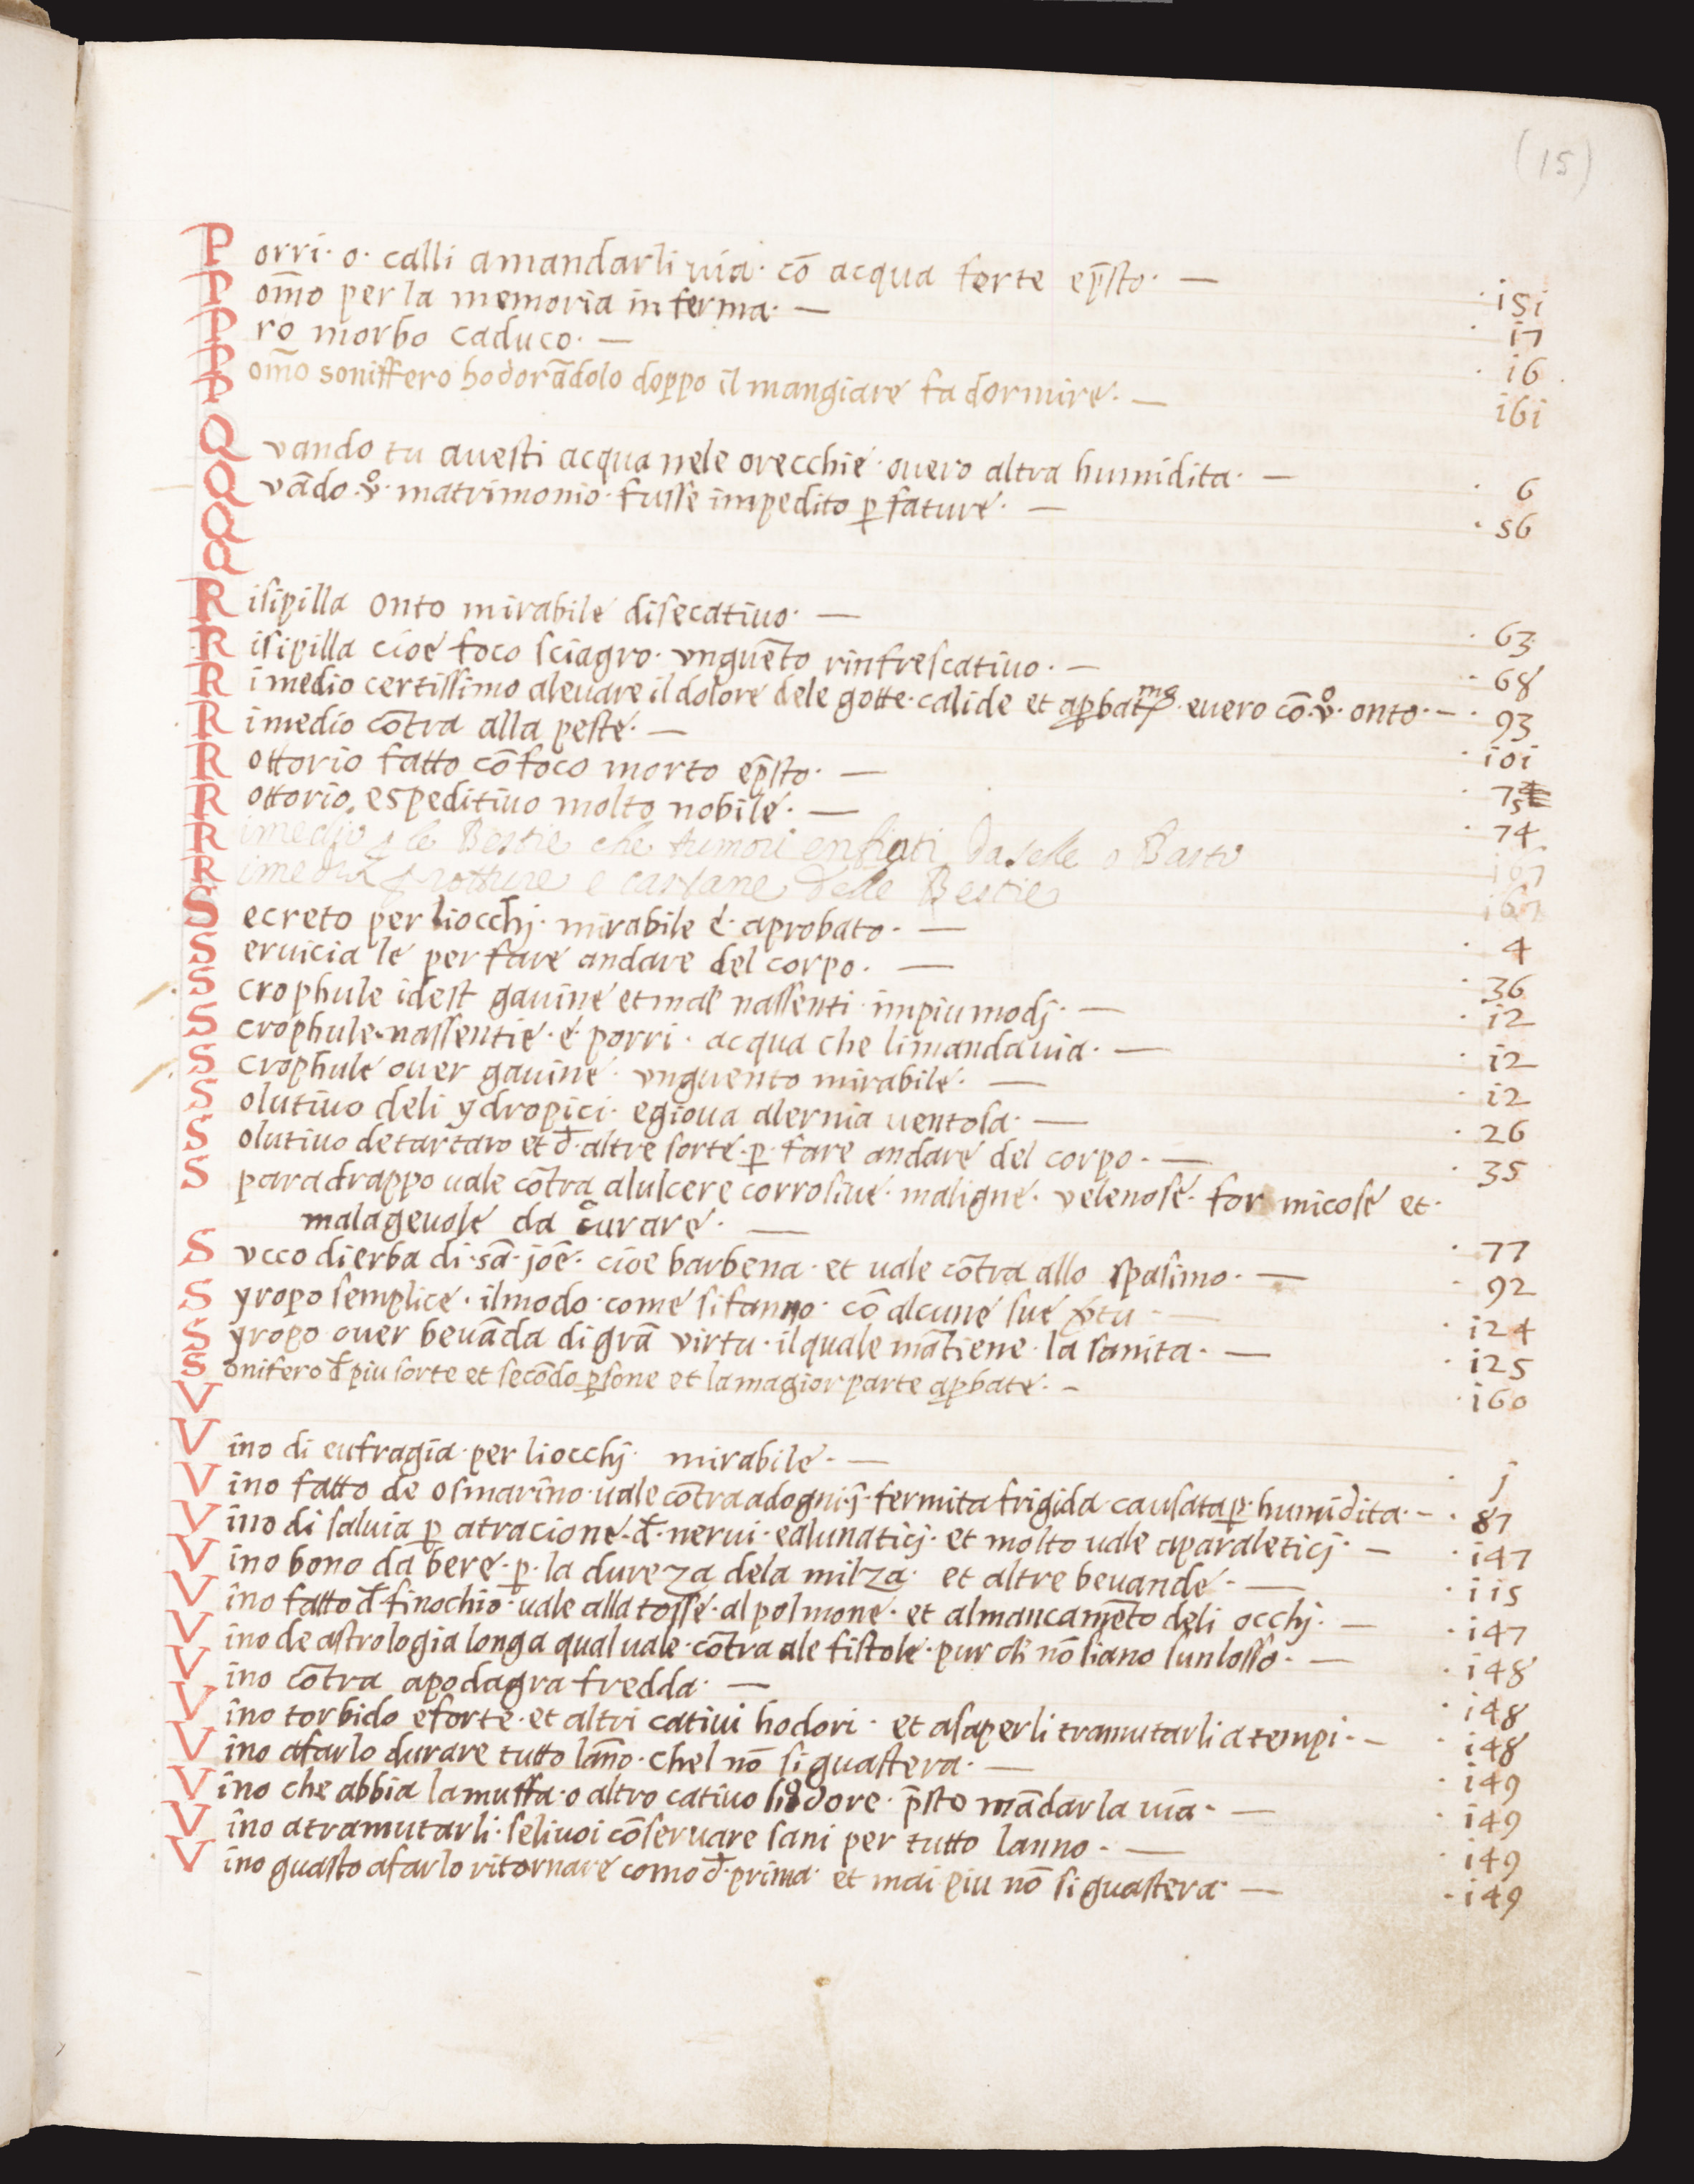 (15)
Porri· o· calli amandarli uia· cō acqua forte ep̄sto· — · i5i
Pom̄o per la memoria inferma· — · i7
Pro morbo caduco· — · i6
Pom̄o soniffero hodorādolo doppo il mangiare fa dormire· — i6i
P
Qvando tu auesti acqua nele orecchie· ouero altra humidita· — · 6
Qvādo· v̊· matrimonio· fusse impedito ꝑ fature· — · 56
Q
Q
Risipilla onto mirabile disecatiuo· — · 63
Risipilla cioe foco sciagro· vnguēto rinfrescatiuo· — · 68
Rimedio certissimo aleuare il dolore dele gotte· calide et aꝓbatmo· euero cō· v̊· onto· — · 93
Rimedio cōtra alla peste· — · i0i
Rottorio fatto cō foco morto ep̄sto· — · 75
Rottorio, espeditiuo molto nobile· — · 74
Rimedio ꝑ le Bestie che tumori enfiati da selle o Basto i67
Rimedia ꝑ rotture e delle Bestie i67
Secreto per liocchj· mirabile e· aprobato· — · 4
Seruicia le per fare andare del corpo· — · 36
Scrophule idest gauine et mal nassenti· impiu modj· — · i2
Scrophule· nassentie· e· porri· acqua che limanda uia· — · i2
Scrophule ouer gauine· vnguento mirabile· — · i2
Solutiuo deli ydropici· egioua alernia uentosa· — · 26
Solutiuo de tartaro et đ· altre sorte· ꝑ· fare andare del corpo· — · 35
Sparadrappo uale cōtra alulcere corrosiue· maligne· velenose· for micose et·
malageuole da curare· — · 77
Svcco di erba di· sā· joē· cioe barbena· et uale cōtra allo spasimo· — · 92
Syropo semplice· ilmodo· come si fanno· cō alcune sue v̄tu — · i24
Syropo ouer beuāda di grā virtu· ilquale mātiene· la sanita· — · i25
Sonifero đ piu sorte et secōdo ꝑsone et la magior parte aꝓbate· — · i60
V
Vino di eufragia· per liocchj· mirabile· — · j
Vino fatto de osmarino· uale cōtra adogni· j̄· fermita frigida· causata ꝑ· humidita· — · 87
Vino di saluia ꝑ atracione· đ· nerui· ealunaticj· et molto uale aparaleticj· — · i47
Vino bono da bere· ꝑ· la dureza dela milza· et altre beuande· — · ii5
Vino fatto đ finochio· uale alla tosse· al polmone· et almancamēto deli occhj· — · i47
Vino de astrologia longa qual uale· cōtra ale fistole· pur ch̄ nō siano sunlosso· — · i48
Vino cōtra apodagra fredda· — · i48
Vino torbido eforte· et altri catiui hodori· et asaperli tramutarli a tempi· — · i48
Vino afarlo durare tutto lan̄o· chel nō si guastera· — · i49
Vino che abbia la muffa· o altro catiuo hodore· p̄sto mādarla uia· — · i49
Vino atramutarli· se li uoi cōseruare sani per tutto lanno· — · i49
Vino guasto afarlo ritornare como đ· prima· et mai piu nō si guastera· — · i49